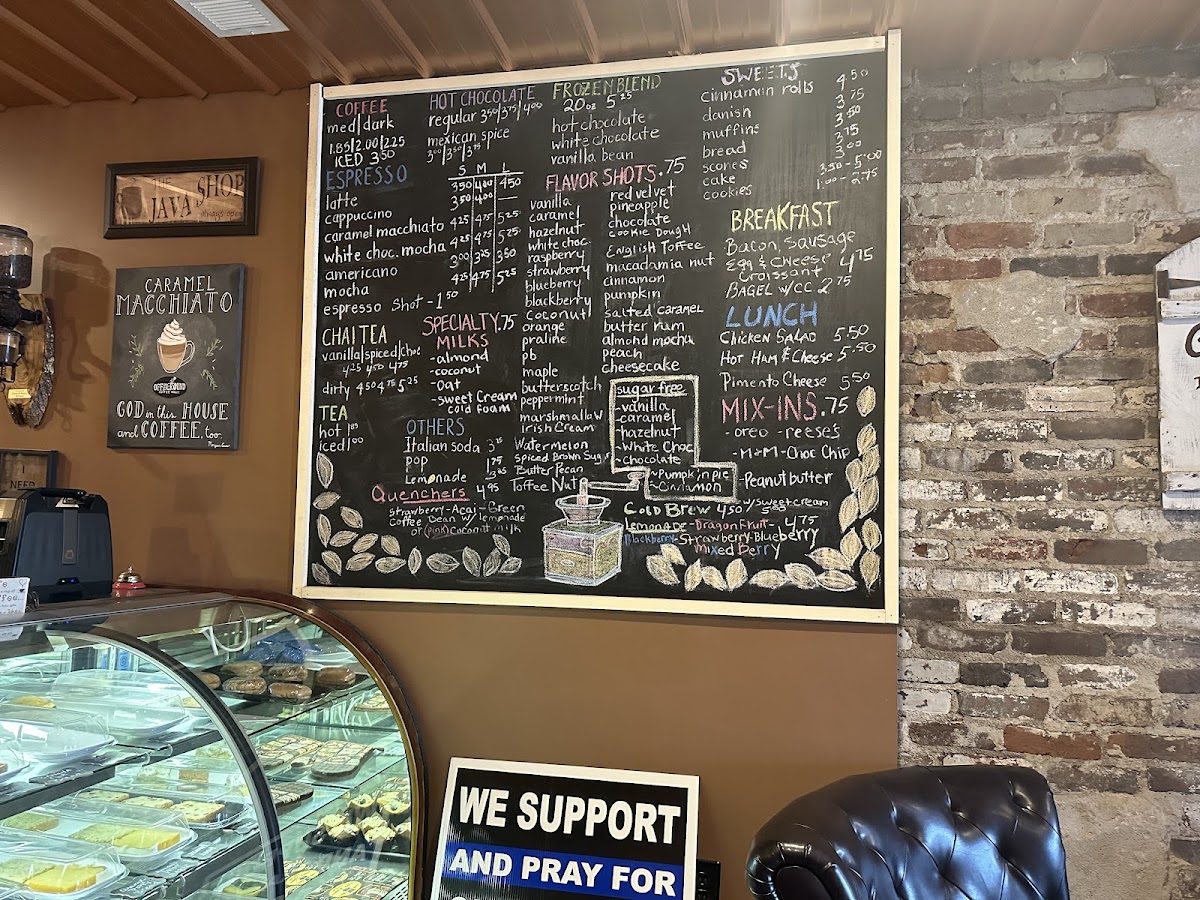 COFFEE
med|dark
1.85|2.00|225
ICED 350
ESPRESSO
S M L
350|400|450
latte
350|400|—
cappuccino
caramel macchiato 425|475|525
white choc. mocha 425|475|525
americano 300|325|350
mocha 425|475|525
espresso shot - 150
CHAI TEA
vanilla|spiced|choc
425 450 475
dirty 450 475 525
TEA
hot 185
iced
HOT CHOCOLATE
regular 350|375|400
mexican spice
300|350|375
SPECIALTY .75
MILKS
-almond
-coconut
-oat
-sweet Cream
cold foam
OTHERS
Italian soda 315
pop 175
Lemonade
Quenchers 495
Strawberry-Acai-Green
Coffee Bean w/ lemonade
or (PINK) Coconut milk
FROZEN BLEND
20oz 525
hot chocolate
white chocolate
vanilla bean
FLAVOR SHOTS .75
vanilla
caramel
hazelnut
white choc.
raspberry
strawberry
blueberry
blackberry
coconut
orange
praline
pb
maple
butterscotch
peppermint
marshmallow
Irish Cream
Watermelon
Spiced Brown Sug
Butter Pecan
Toffee Nut
red velvet
pineapple
chocolate
cookie Dough
English Toffee
macadamia nut
cinnamon
pumpkin
salted caramel
butter rum
almond mocha
peach
cheesecake
sugar free
-vanilla
-caramel
-hazelnut
-White Choc
-Chocolate
-Pumpkin pie
-Cinnamon
SWEETS
cinnamon rolls 4.50
danish 3.75
muffins 3.50
bread 3.75
scones 3.00
cake 3.50-5.00
cookies 1.00-2.75
BREAKFAST
Bacon, Sausage
Egg & Cheese 475
Croissant
BAGEL w/CC 275
LUNCH
Chicken Salad 5.50
Hot Ham & Cheese 5.50
Pimento Cheese 550
MIX-INS .75
-oreo -reese's
-M+M-Choc Chip
-Peanut butter
COLD BREW 450/ w/sweet cream
Lemonade-Dragon Fruit- 475
Blackberry-Strawberry-Blueberry
Mixed Berry
THE
JAVA SHOP
always open
CARAMEL
MACCHIATO
COFFEEGROUND
GOD in this HOUSE
and COFFEE, too.
NEED
WE SUPPORT
AND PRAY FOR